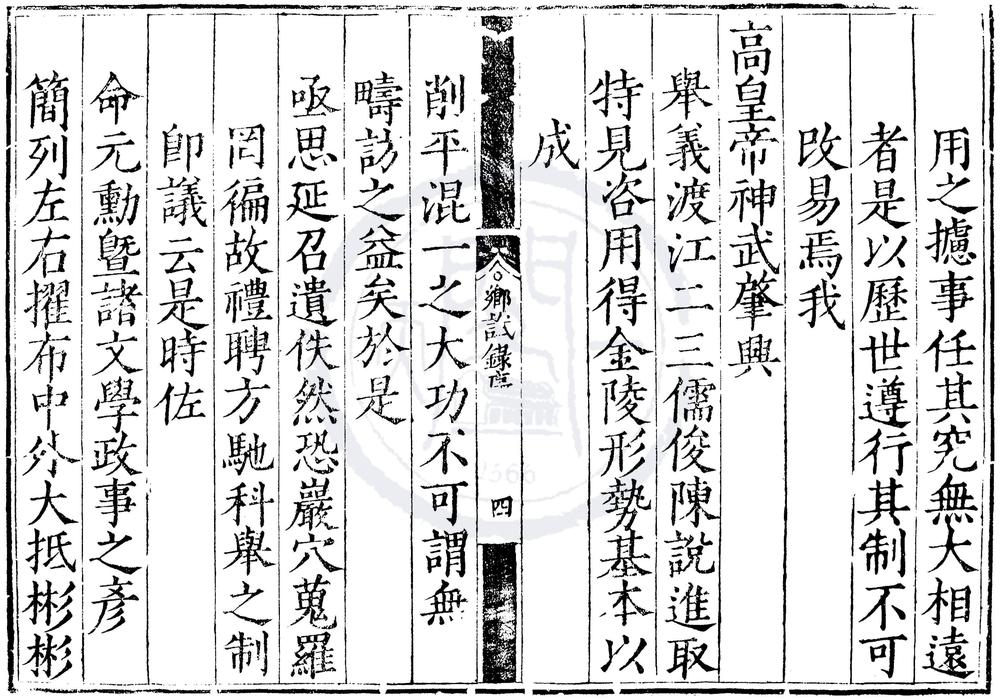 用之攄事任其究無大相遠
者是以歷世遵行其制不可
改易焉我
高皇帝神武肇興
舉義渡江二三儒俊陳說進取
特見咨用得金陵形勢基本以
成
鄉試錄序
四
削平混一之大功不可謂無
疇訪之益矣於是
亟思延召遺佚然恐巖穴蒐羅
罔徧故禮聘方馳科舉之制
卽議云是時佐
命元勳曁諸文學政事之彥
簡列左右擢布中外大抵彬彬